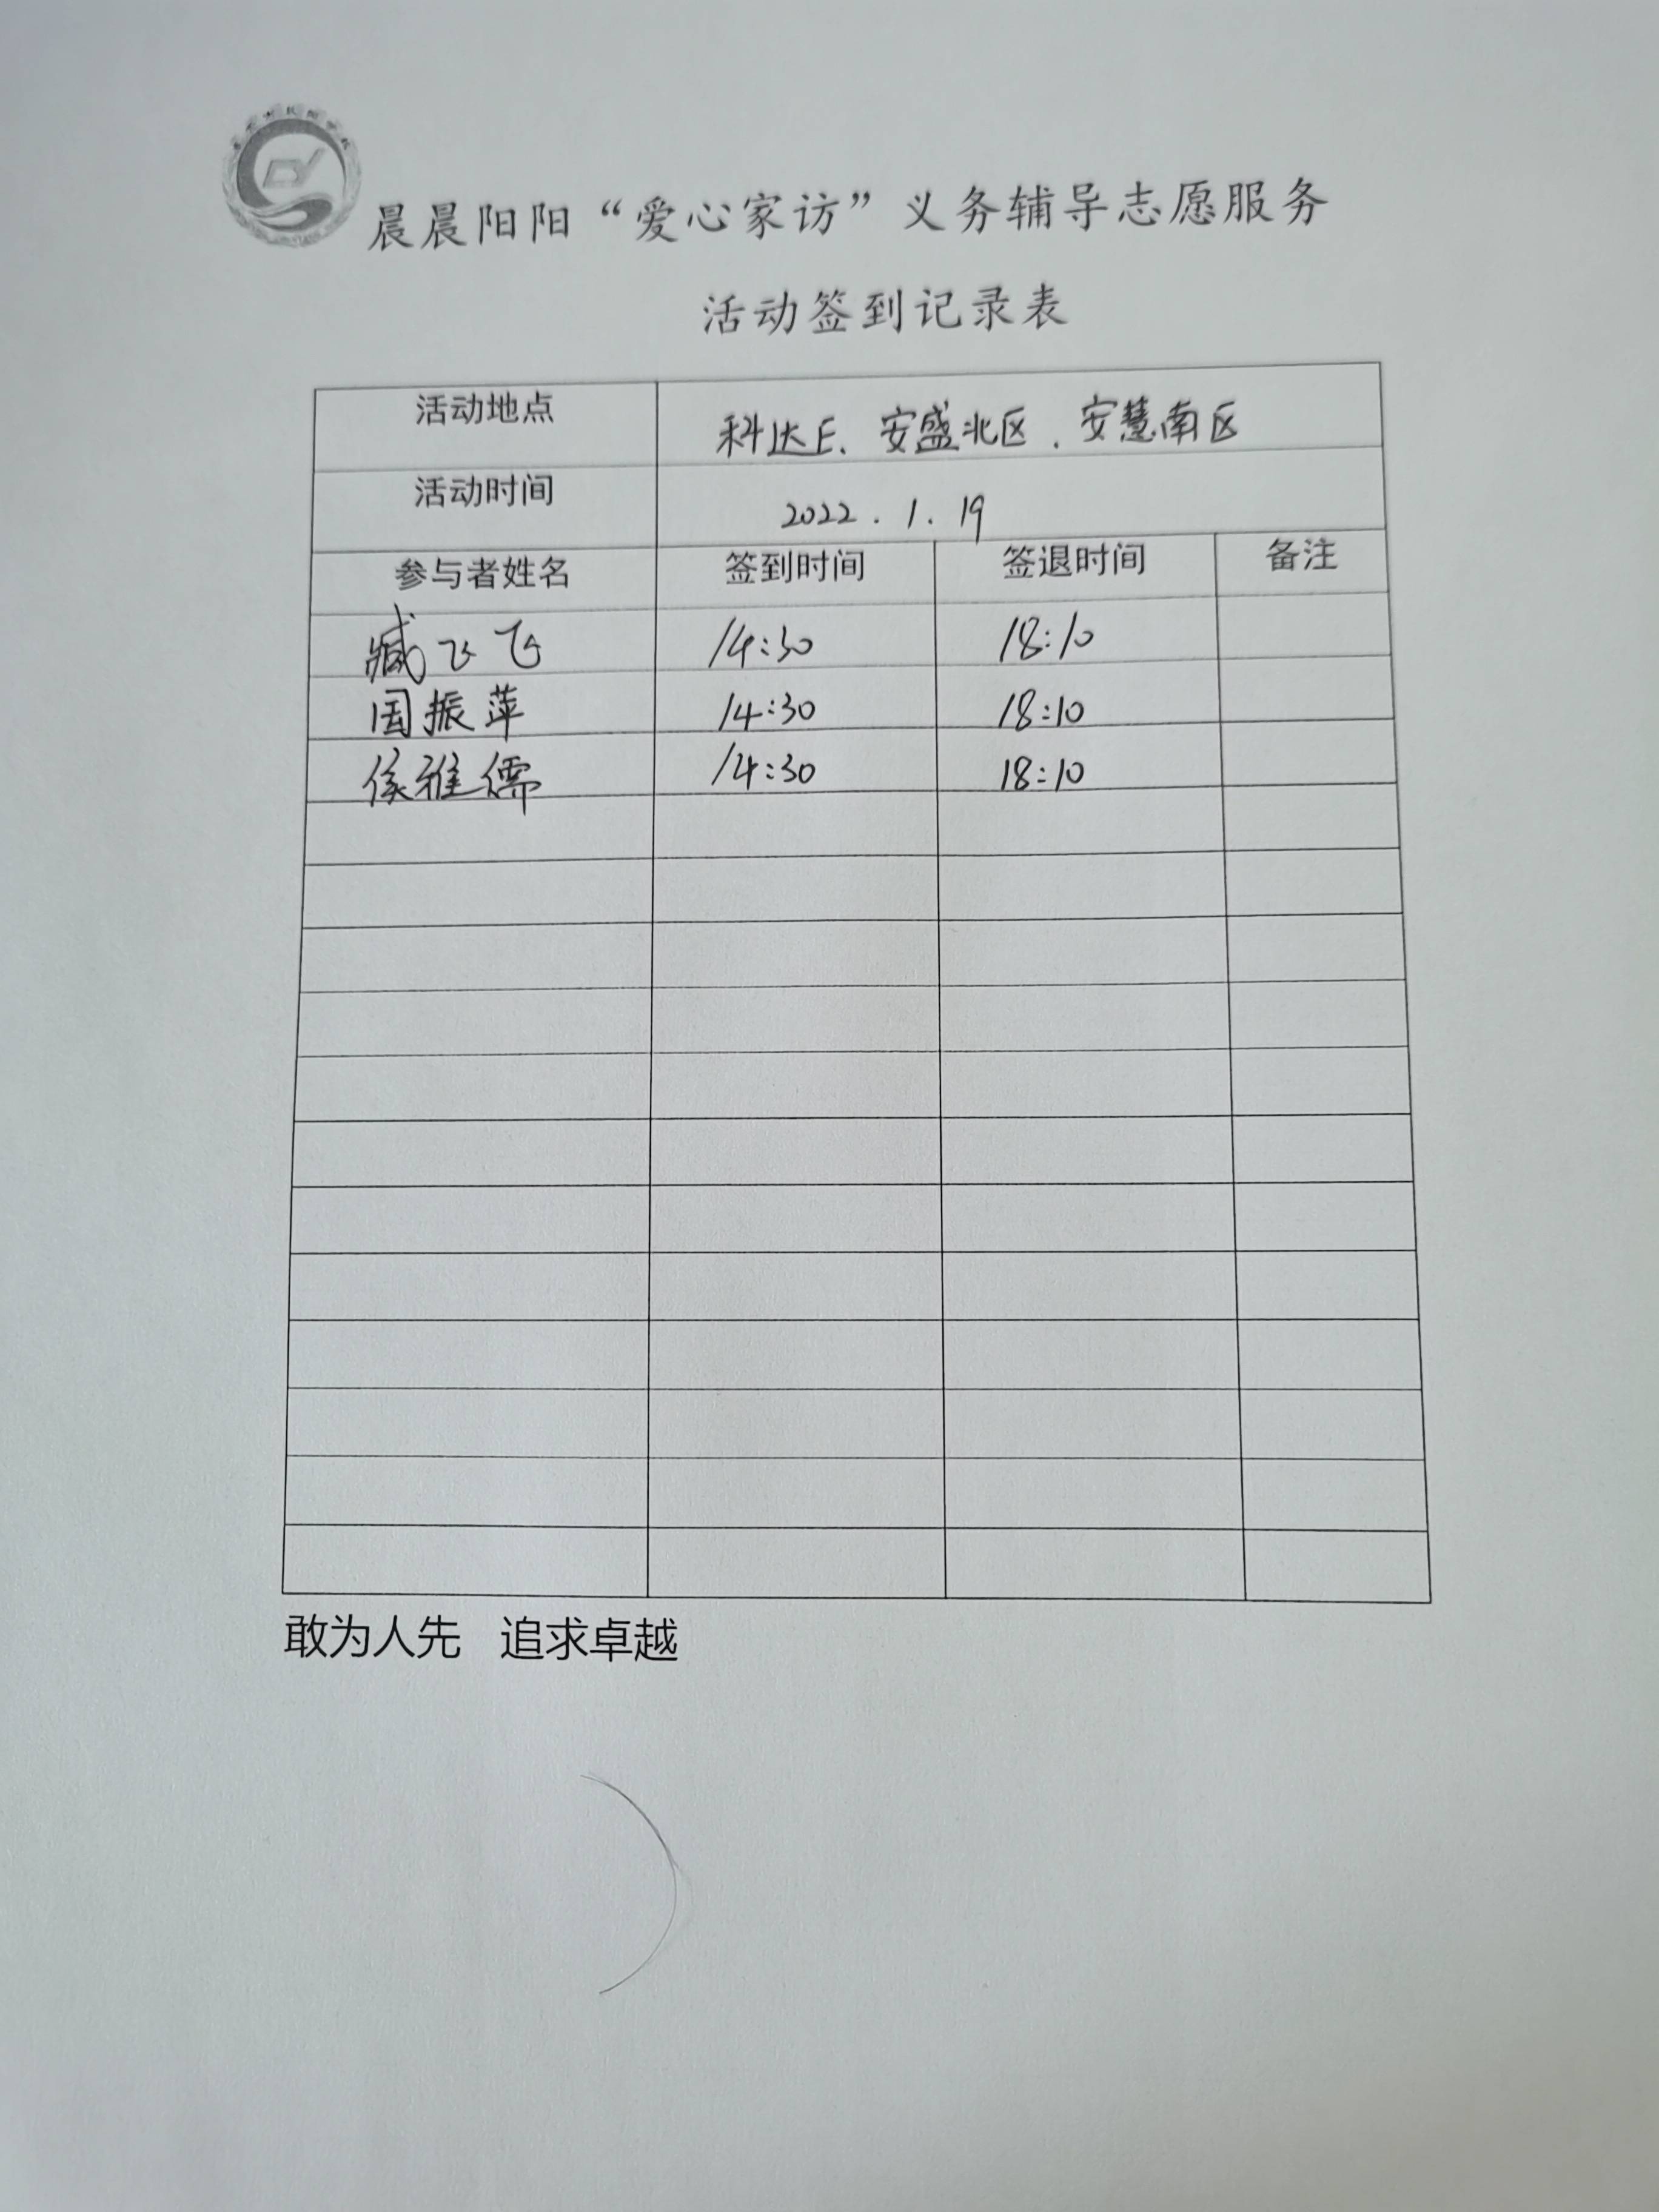 晨晨阳阳“爱心家访”义务辅导志愿服务
活动签到记录表
活动地点 科达E、安盛北区、安慧南区
活动时间 2022.1.19
参与者姓名 签到时间 签退时间 备注
臧飞飞 14:30 18:10
国振萍 14:30 18:10
侯雅儒 14:30 18:10
敢为人先 追求卓越